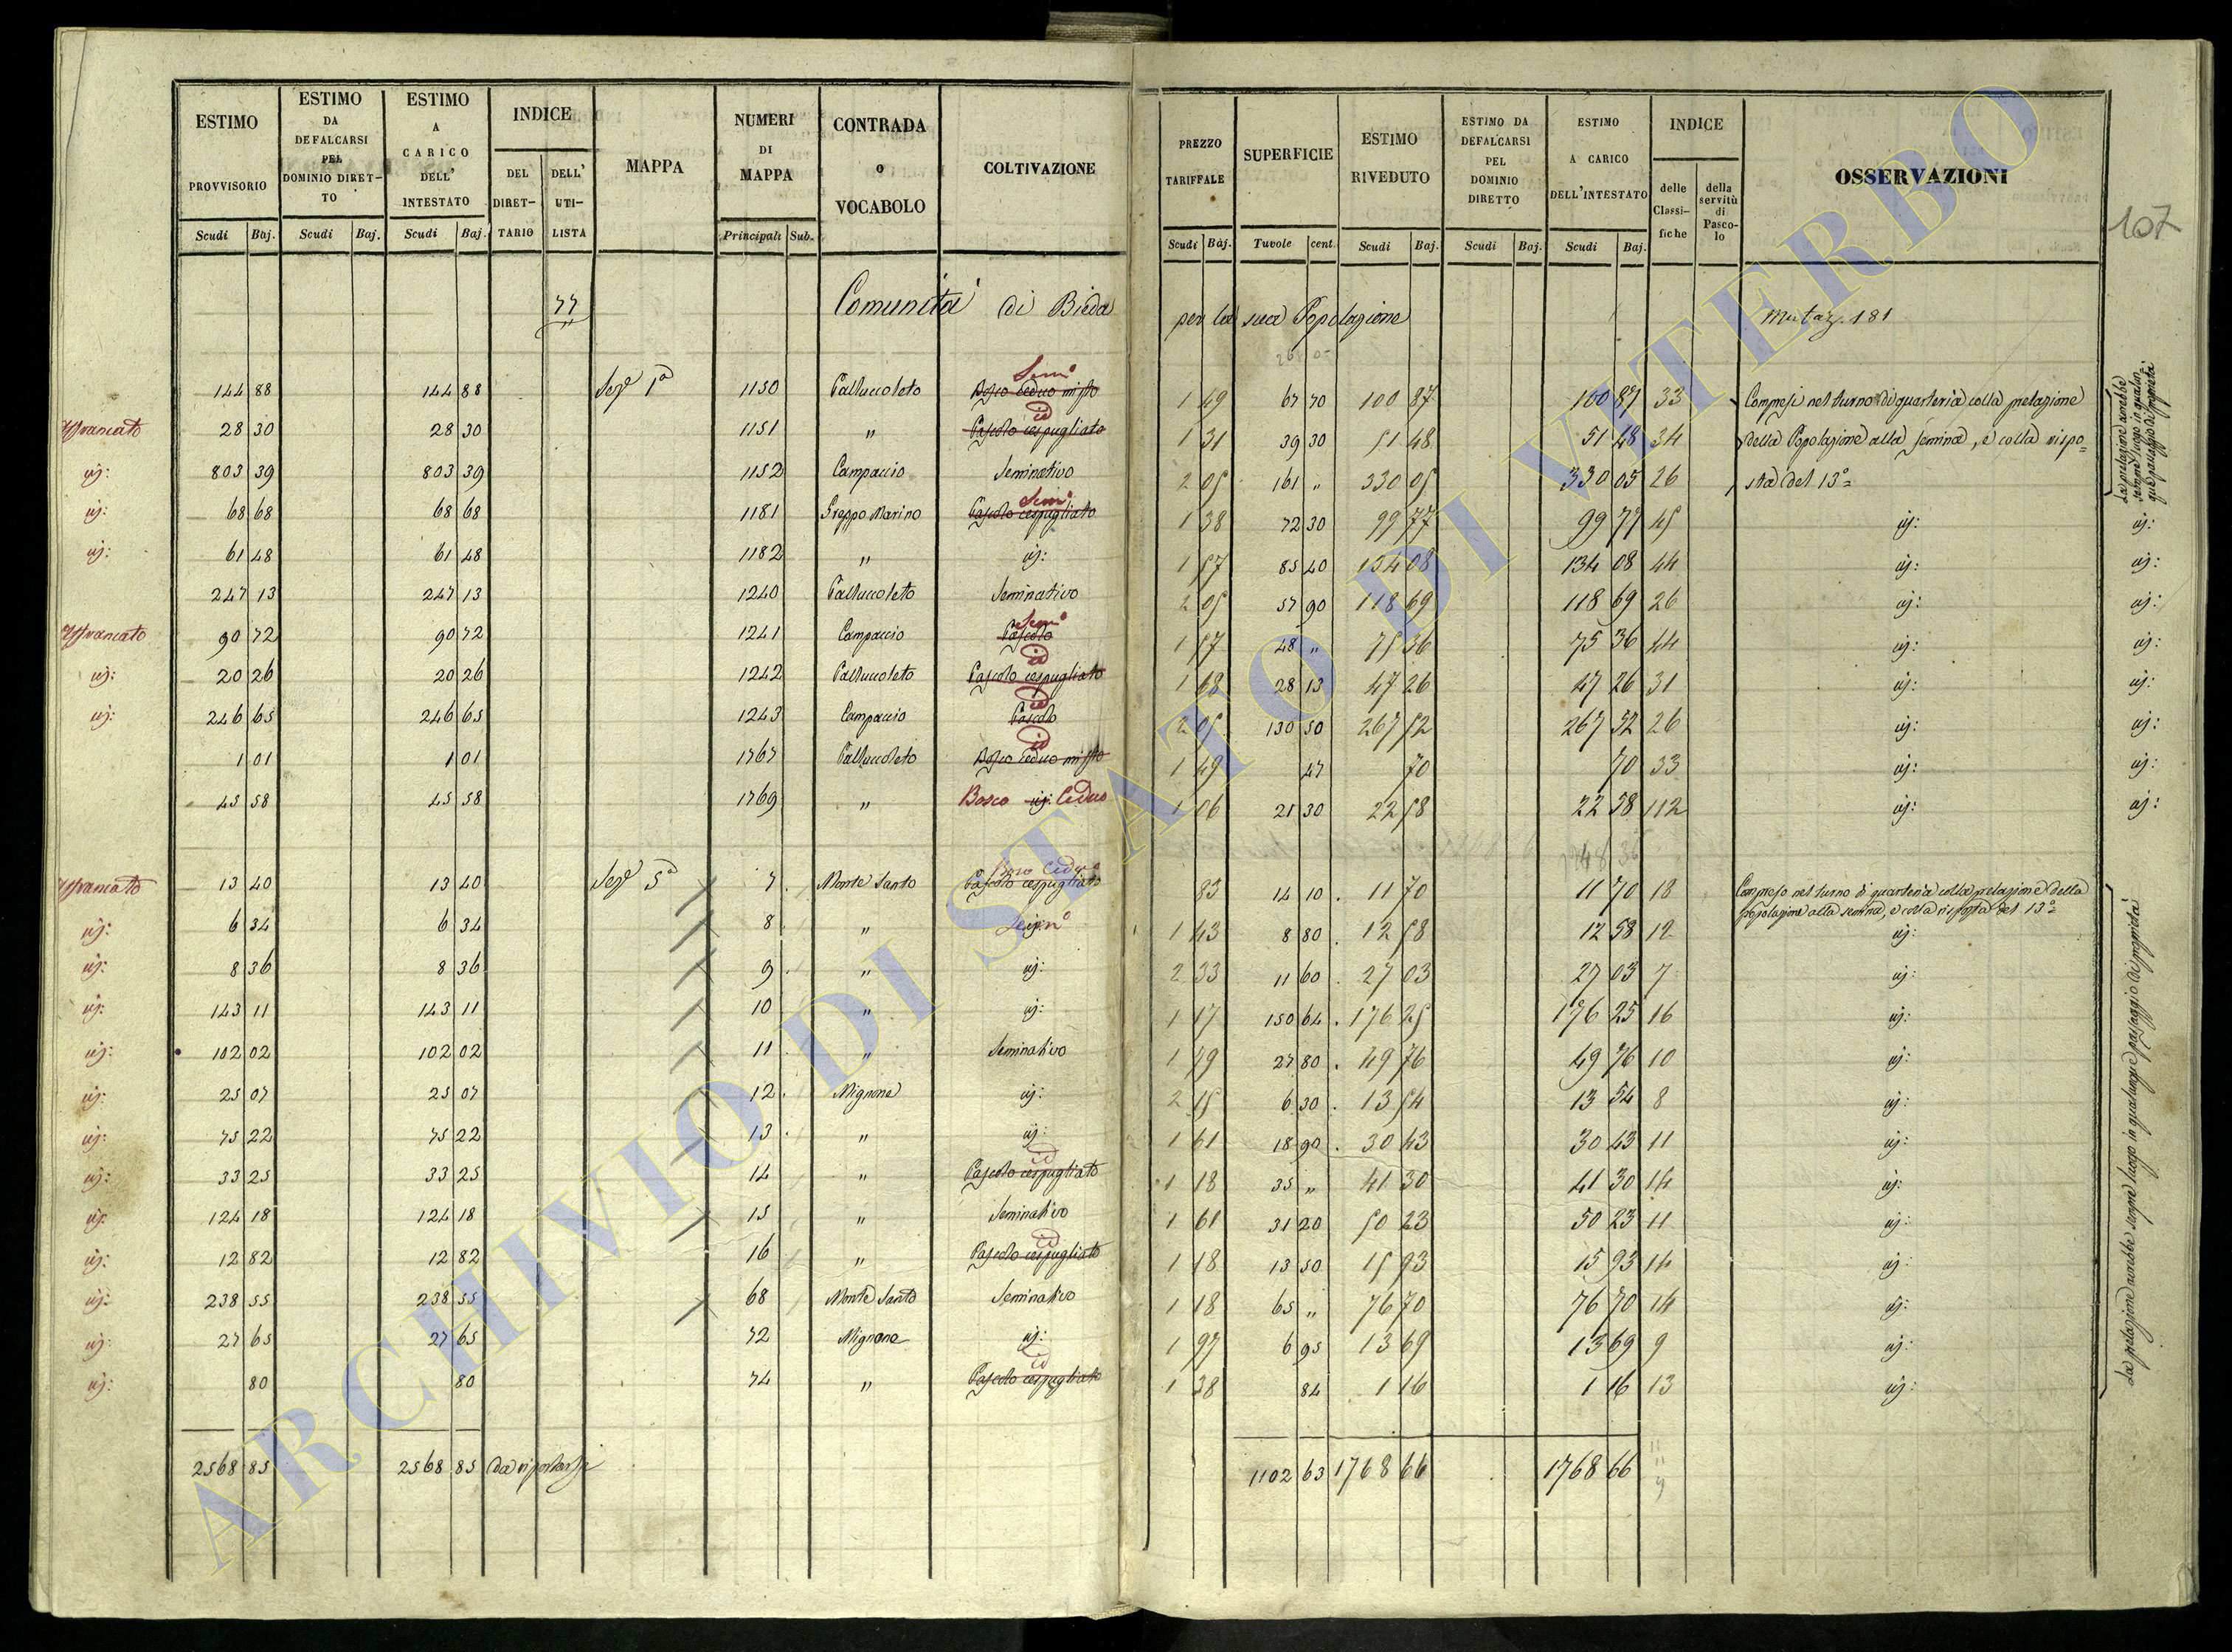 ESTIMO PROVVISORIO Scudi Baj.
ESTIMO DA DEFALCARSI PEL DOMINIO DIRET-TO Scudi Baj.
ESTIMO A CARICO DELL' INTESTATO Scudi Baj.
INDICE DEL DIRET-TARIO DELL' UTI-LISTA
MAPPA
NUMERI DI MAPPA Principali Sub.
CONTRADA o VOCABOLO
COLTIVAZIONE
PREZZO TARIFFALE Scudi Baj.
SUPERFICIE Tavole cent.
ESTIMO RIVEDUTO Scudi Baj.
ESTIMO DA DEFALCARSI PEL DOMINIO DIRETTO Scudi Baj.
ESTIMO A CARICO DELL'INTESTATO Scudi Baj.
INDICE delle Classi-fiche della servitù di Pasco-lo
OSSERVAZIONI
107
77 Comunità di Bieda per la sua Popolazione Mutaz. 181
144 88 144 88 Sez.e 1a 1150 Palluccoleto Bosco ceduo misto Sem.o 1 49 67 70 100 87 100 87 33 Compresi nel turno di quarteria colla prelazione
Affrancato 28 30 28 30 1151 " Pascolo cespugliato id 1 31 39 30 51 48 51 48 34 della Popolazione alla semina, e colla rispo=
id: 803 39 803 39 1152 Campaccio Seminativo 2 05 161 " 330 05 330 05 26 sta del 13o=
id: 68 68 68 68 1181 Greppo Marino Pascolo cespugliato Sem.o 1 38 72 30 99 77 99 77 45 id: id:
id: 61 48 61 48 1182 " id: 1 57 85 40 134 08 134 08 44 id: id:
247 13 247 13 1240 Palluccoleto Seminativo 2 05 57 90 118 69 118 69 26 id: id:
Affrancato 90 72 90 72 1241 Campaccio Pascolo Sem.o 1 57 48 " 75 36 75 36 44 id: id:
id: 20 26 20 26 1242 Palluccoleto Pascolo cespugliato id 1 68 28 13 47 26 47 26 31 id: id:
id: 246 65 246 65 1243 Campaccio Pascolo id 2 05 130 50 267 52 267 52 26 id: id:
1 01 1 01 1767 Palluccoleto Bosco ceduo misto id 1 49 47 70 70 33 id: id:
45 58 45 58 1769 " Bosco id: Ceduo 1 06 21 30 22 58 22 58 112 id: id:
La prelazione avrebbe sempre luogo in qualun-que passaggio di proprietà
Affrancato 13 40 13 40 Sez.e 5a 7 Monte Santo Pascolo cespugliato Bosco Ceduo 83 14 10 11 70 11 70 18 Compreso nel turno di quarteria colla prelazione della
popolazione alla semina, e colla risposta del 13o=
id: 6 34 6 34 8 " Sem.o 1 43 8 80 12 58 12 58 12 id:
id: 8 36 8 36 9 " id: 2 33 11 60 27 03 27 03 7 id:
id: 143 11 143 11 10 " id: 1 17 150 64 176 25 176 25 16 id:
id: 102 02 102 02 11 " Seminativo 1 79 27 80 49 76 49 76 10 id:
id: 25 07 25 07 12 Mignone id: 2 15 6 30 13 54 13 54 8 id:
id: 75 22 75 22 13 " id: 1 61 18 90 30 43 30 43 11 id:
id: 33 25 33 25 14 " Pascolo cespugliato id 1 18 35 " 41 30 41 30 14 id:
id: 124 18 124 18 15 " Seminativo 1 61 31 20 50 23 50 23 11 id:
id: 12 82 12 82 16 " Pascolo cespugliato id 1 18 13 50 15 93 15 93 14 id:
id: 238 55 238 55 68 Monte Santo Seminativo 1 18 65 " 76 70 76 70 14 id:
id: 27 65 27 65 72 Mignone id: 1 97 6 95 13 69 13 69 9 id:
id: 80 80 74 " Pascolo cespugliato id 1 38 84 1 16 1 16 13 id:
La prelazione avrebbe sempre luogo in qualunque passaggio di proprietà
2568 85 2568 85 da riportarsi 1102 63 1768 66 1768 66
ARCHIVIO DI STATO DI VITERBO